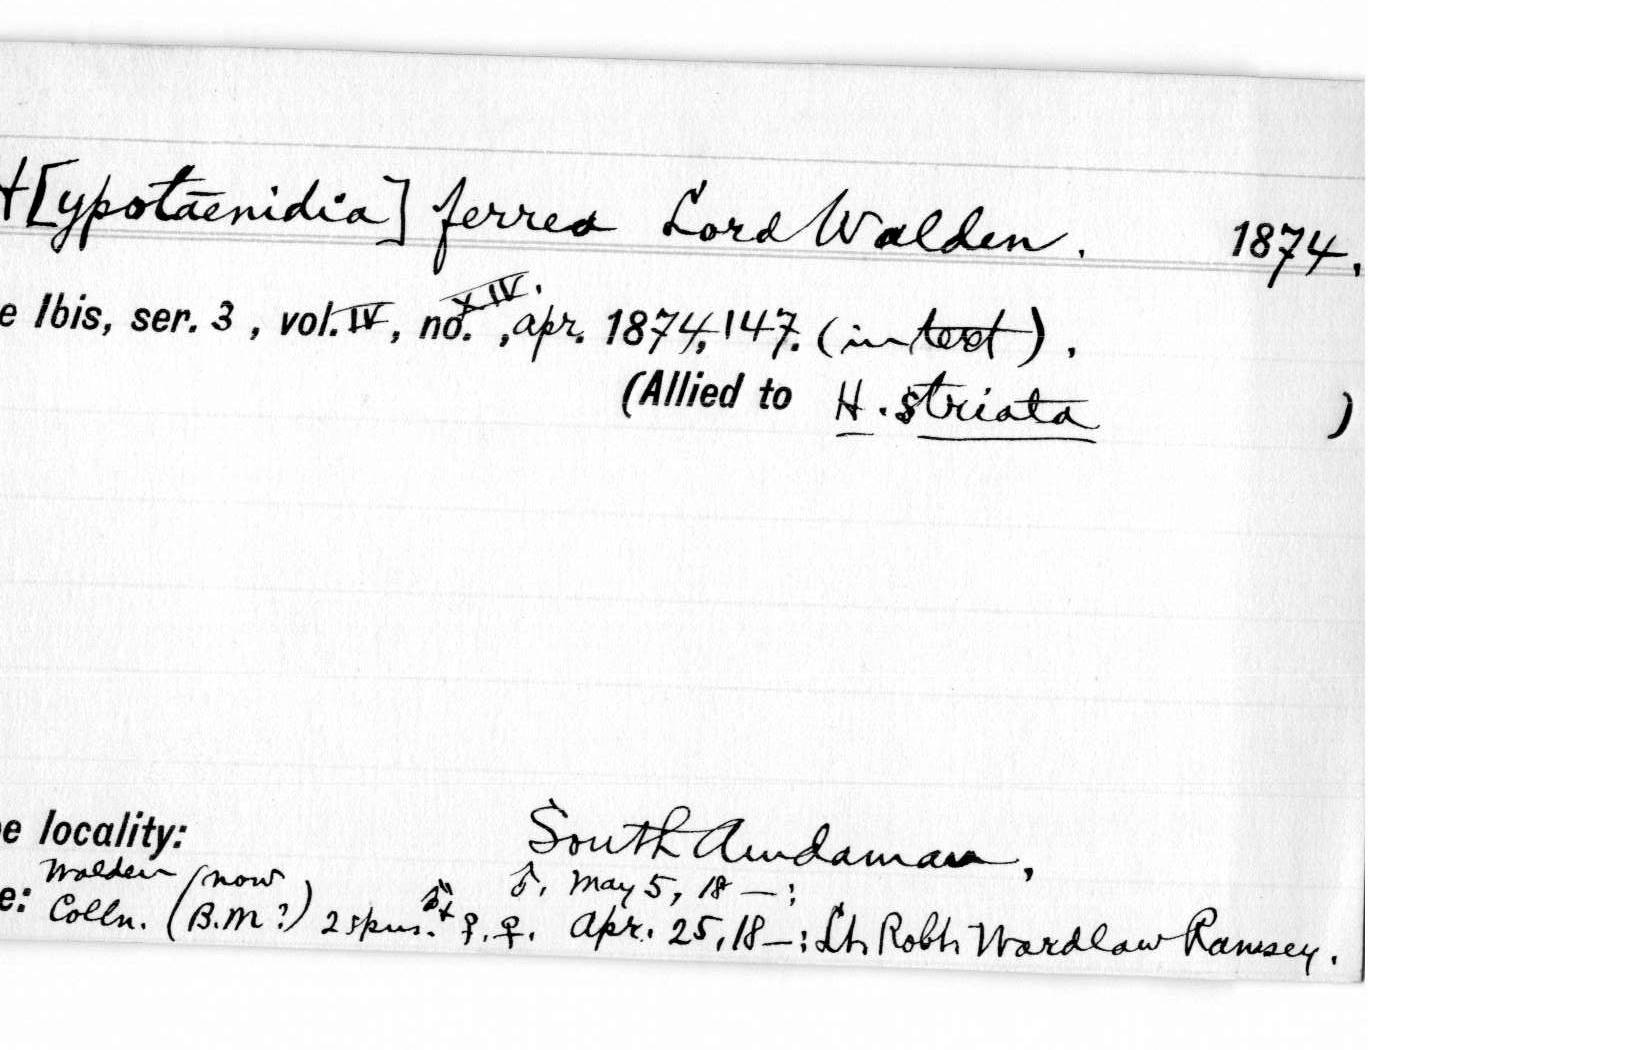 H[ypotaenidia] ferrea Lord Walden. 1874.
e Ibis, ser. 3, vol. IV, no. XIV, apr. 1874, 147. (in text).
(Allied to H. striata )
e locality: South Andaman,
Walden (now ♂, May 5, 18—;
e: Colln. (B.M?) 2 spms. ♂ + ♀. ♀. Apr. 25, 18—; Lt. Robt. Wardlaw Ramsey.